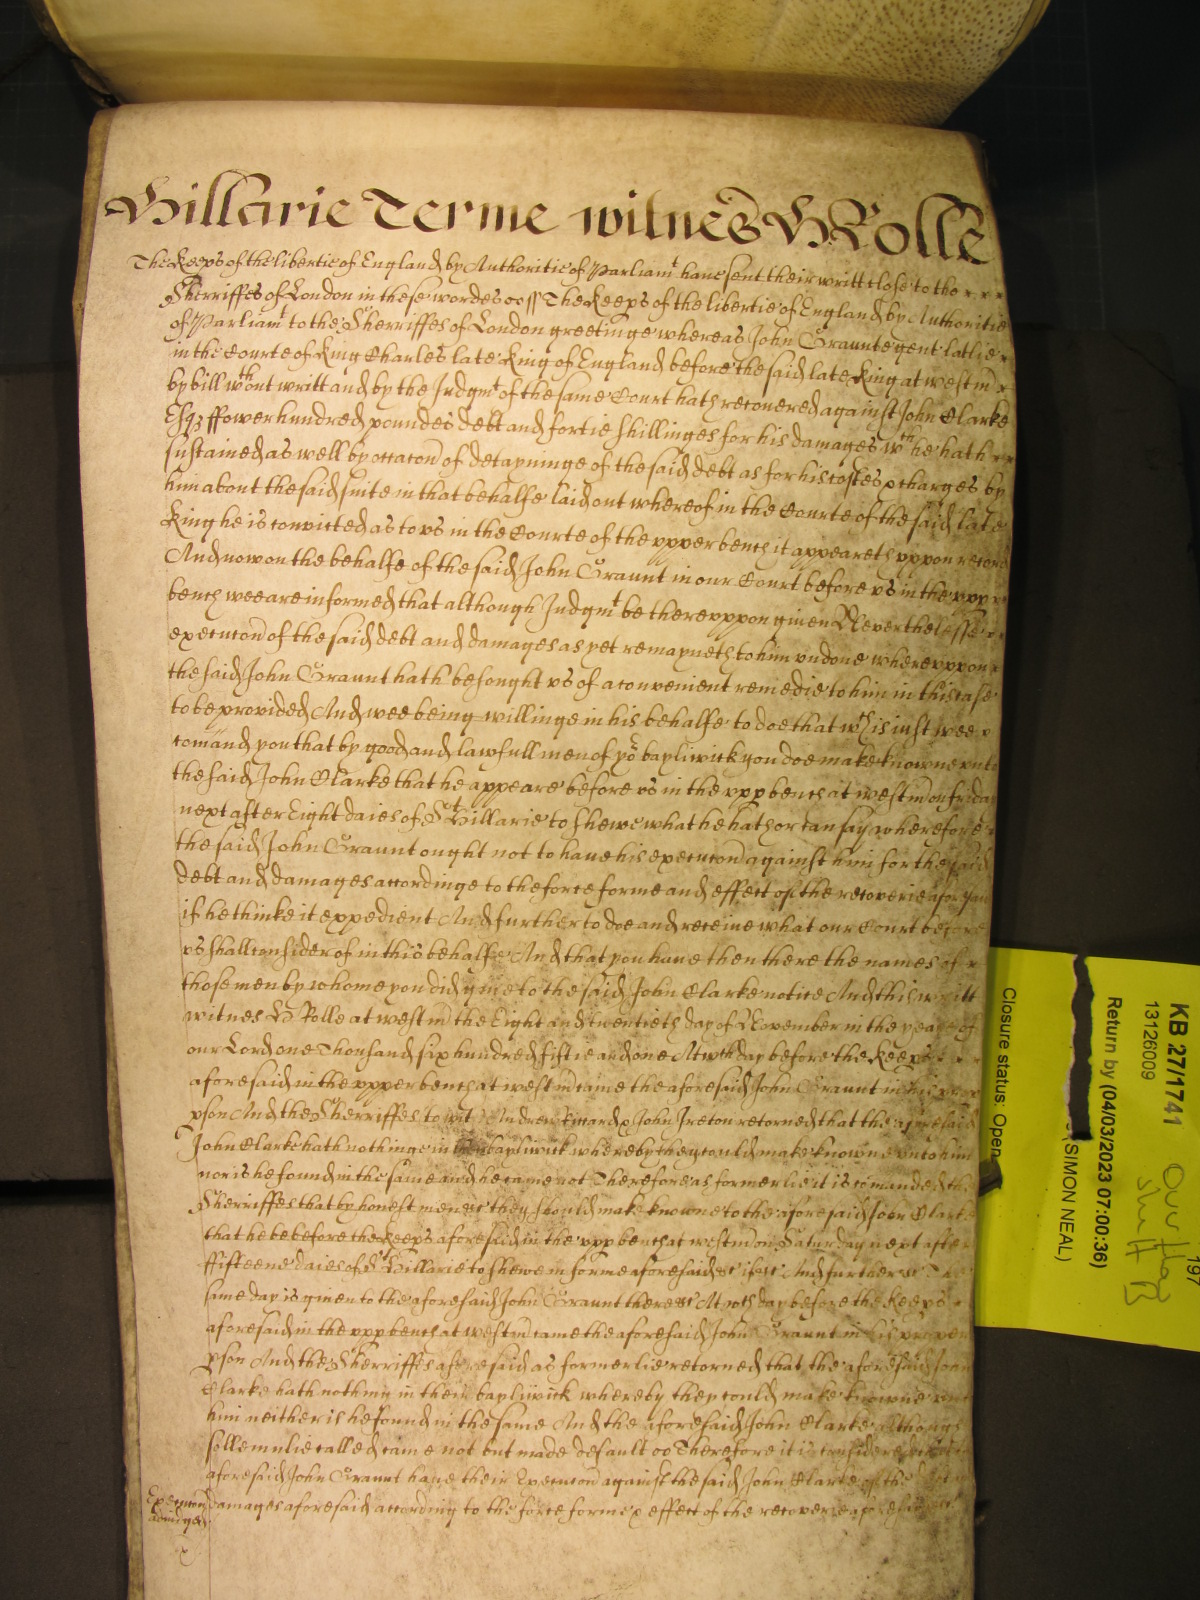 Hillarie Terme witnes H Rolle
The Keeps of the libertie of England by Authoritie of Parliamt have sent their writt close to the
Sherriffes of London in these wordes ss The Keeps of the libertie of England by Authoritie
of Parliamt to the Sherriffes of London greetinge whereas John Graunte gent latlie
in the Courte of King Charles late King of England before the said late King at westm
by bill wthout writt and by the Judgmt of the same Court hath recovered against John Clarke
Esq ffower hundred poundes debt and fortie shillinges for his damages wch he hath
sustained as well by occacon of detayninge of the said debt as for his costes & charges by
him about the said suite in that behalfe laid out whereof in the Courte of the said late
King he is convicted as to vs in the Courte of the vpper bench it appeareth vppon record
And now on the behalfe of the said John Graunt in our Court before vs in the vpp
bench wee are informed that although Judgmt be therevppon given Neverthelesse
execucon of the said debt and damages as yet remayneth to him vndone wherevppon
the said John Graunt hath besought vs of a convenient remedie to him in this case
to be provided And wee being willinge in his behalfe to doe that wch is iust wee
comand you that by good and lawfull men of yor bayliwick you doe make knowne vnto
the said John Clarke that he appeare before vs in the vpp bench at westm on friday
next after Eight daies of St Hillarie to shewe what he hath or can say wherefore
the said John Graunt ought not to have his execucon against him for the said
debt and damages accordinge to the force forme and effect of the recoverie aforesaid
if he thinke it expedient And further to doe and receive what our Court before
vs shall consider of in this behalfe And that you have then there the names of
those men by whome you did give to the said John Clarke notice And this writt
witnes H Rolle at westm the Eight and twentieth day of November in the yeare of
our Lord one Thousand six hundred fiftie and one At wch day before the Keeps
aforesaid in the vpper bench at westm came the aforesaid John Graunt in his
pson And the Sherriffes to wit Andrew Ricard & John Ireton retorned that the aforesaid
John Clarke hath nothinge in their bayliwick whereby they could make knowne vnto him
nor is he found in the same and he came not Therefore as formerlie it is comanded the
Sherriffes that by honest men &c they should make knowne to the aforesaid John Clarke
that he be before the Keeps aforesaid in the vpp bench at westm on Saturday next after
ffifteene daies of St Hillarie to shewe in forme aforesaid &c if &c And further &c The
same day is given to the aforesaid John Graunt there &c At wch day before the Keeps
aforesaid in the vpp bench at westm came the aforesaid John Graunt in his proper
pson And the Sherriffes aforesaid as formerlie retorned that the aforesaid John
Clarke hath nothing in their bayliwick whereby they could make knowne vnto
him neither is he found in the same And the aforesaid John Clarke Although
sollemnlie called came not but made default Therefore it is considered that the
aforesaid John Graunt have their Execucon against the said John Clarke of the
Execucon
adiudged
damages aforesaid according to the force forme & effect of the recoverie aforesaid
KB 27/1741
13126009
Return by (04/03/2023 07:00:36)
(SIMON NEAL)
Closure status: Open
197